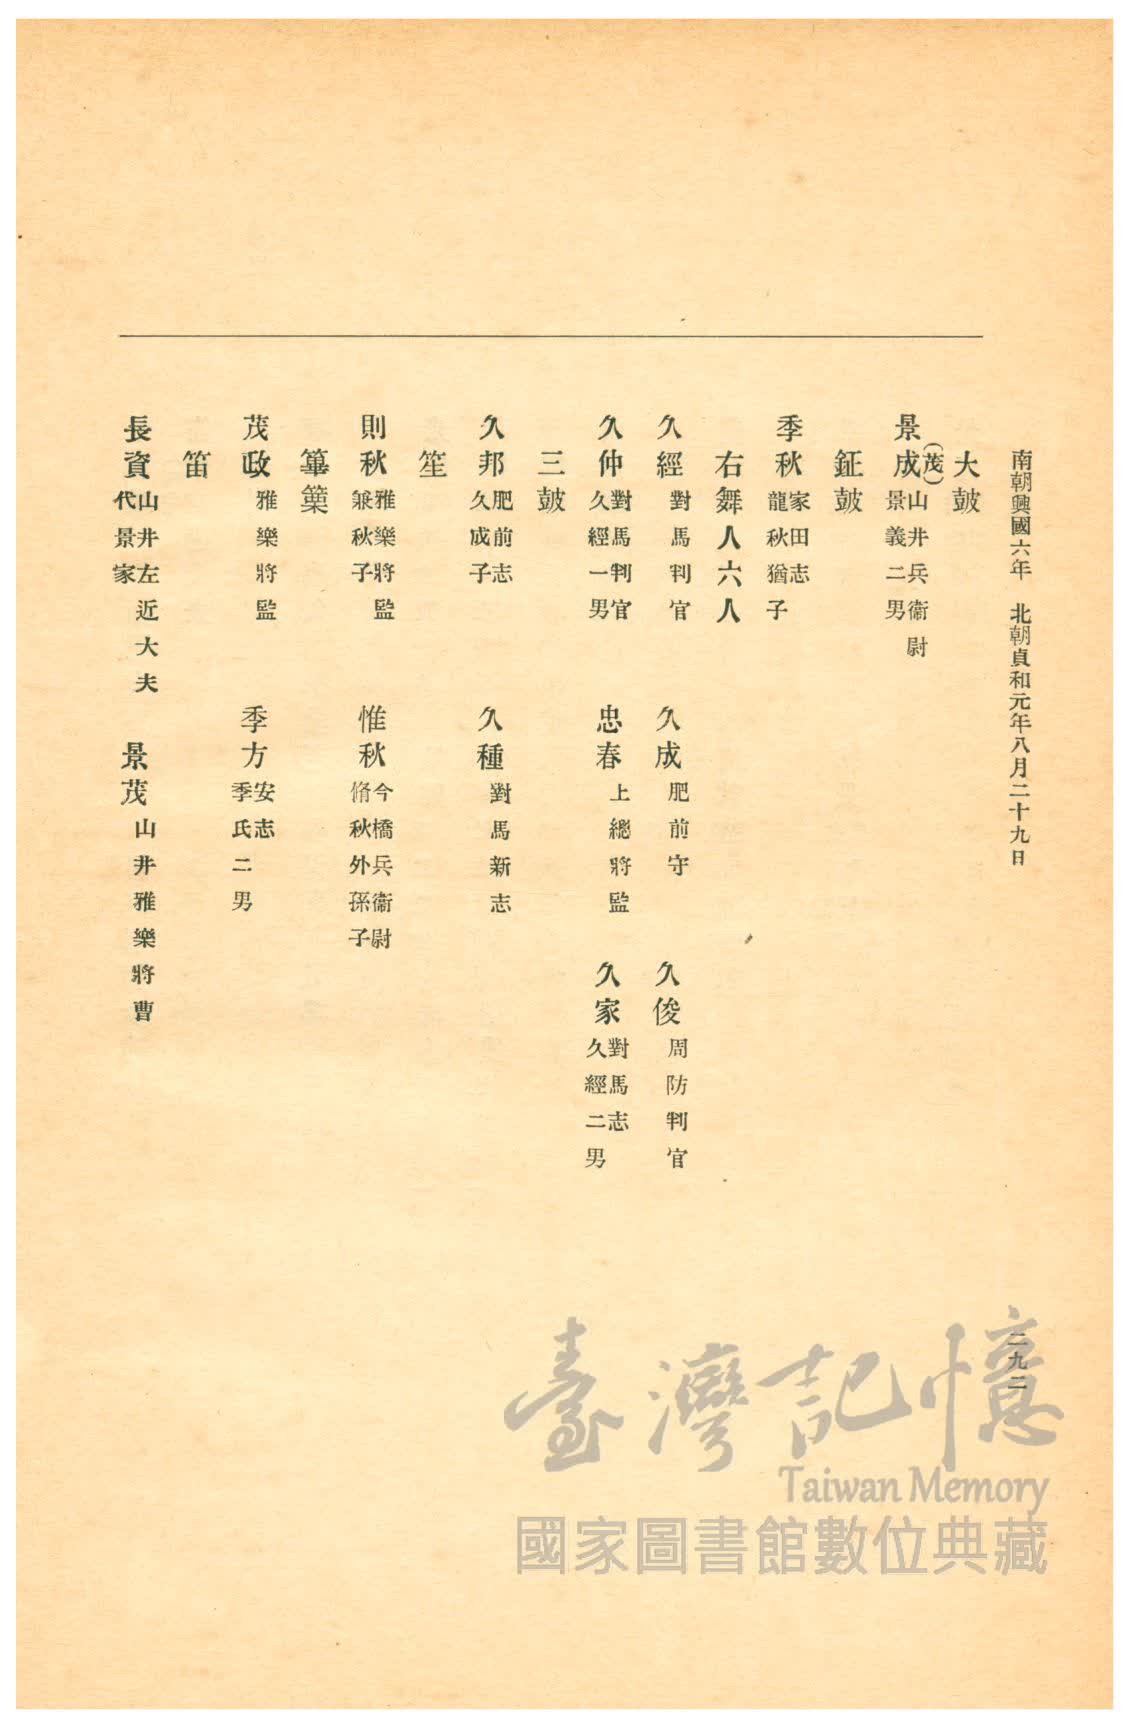 南朝興國六年　北朝貞和元年八月二十九日
二九二
大鼓
景成(茂)　山井兵衞尉　景義二男
鉦鼓
季秋　家田志　龍秋猶子
右舞人六人
久經　對馬判官　久成　肥前守　久俊　周防判官
久仲　對馬判官　久經一男　忠春　上總將監　久家　對馬志　久經二男
三鼓
久邦　肥前志　久成子　久種　對馬新志
笙
則秋　雅樂將監　兼秋子　惟秋　今橋兵衞尉　脩秋外孫子
篳篥
茂政　雅樂將監　季方　安志　季氏二男
笛
長資　山井左近大夫　代景家　景茂　山井雅樂將曹
臺灣記憶
Taiwan Memory
國家圖書館數位典藏